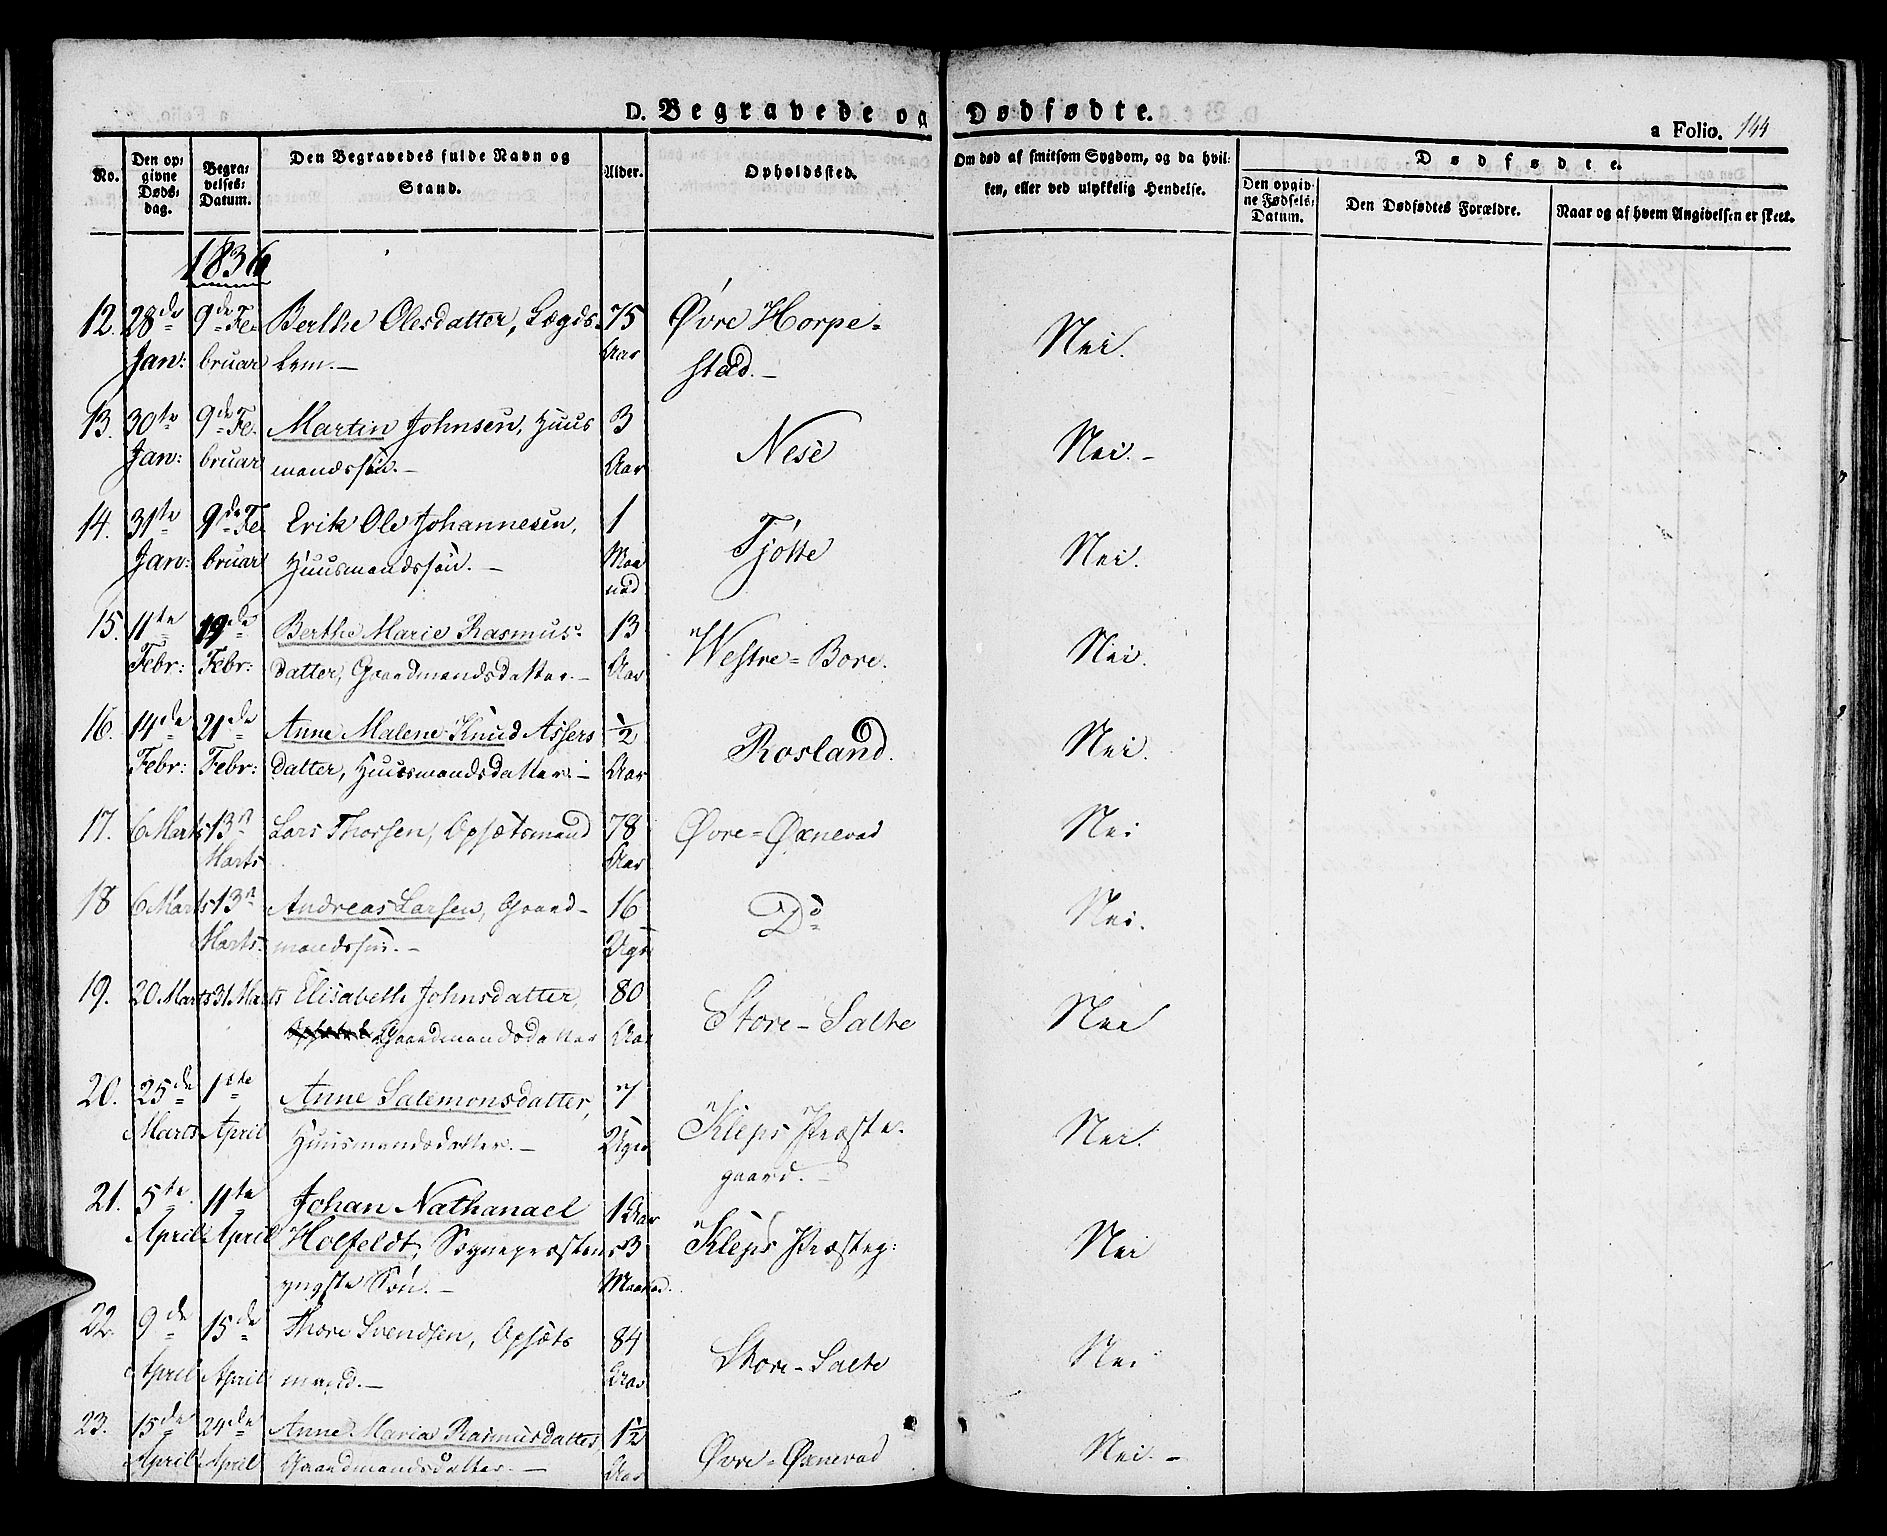 D. Begravede og Dødfødte.
a Folio. 144
No.
Den opgivne Døds-dag.
Begravelses-Datum.
Den Begravedes fulde Navn og Stand.
Alder.
Opholdssted.
Om død af smitsom Sygdom, og da hvilken, eller ved ulykkelig Hendelse.
Dødfødte.
Den opgivne Fødsels-Datum.
Den Dødfødtes Forældre.
Naar og af hvem Angivelsen er skeet.
1836
12. 28de 9de Fe- Berthe Olesdatter, Lægds- 75 Øvre Horpe-
Jan: bruar lem.— Aar stad.— Nei.
13. 30te 9de Fe- Martin Johnsen, Huus 3
Jan: bruar mandssøn.— Aar Nese Nei.—
14. 31te 9de Fe- Erik Ole Johannesen, 1
Jan: bruar Huusmandssøn.— Maa Tjøtte Nei.
ned
15. 11te 19de Berthe Marie Rasmus- 13
Febr: Febr: datter, Gaardmandsdatter.— Aar Westre-Bore. Nei.
16. 14de 21de Anne Malene Knud Assers ½
Febr: Febr: datter, Huusmandsdatter.— Aar Rosland. Nei.
17. 6 Marts 13n Lars Thorsen, Opsætsmand 78 Øvre-Øxnevad Nei
Marts Aar
18 6 Marts 13n Andreas Larsen, Gaard- 16 Do Nei.
Marts. mandssøn.— Uger
19. 20 Marts 31 Marts Elisabeth Johnsdatter, 80
Gaardmandsdatter Aar Store-Salte Nei
20. 25de 1ste Anne Salemonsdatter, 7
Marts April Huusmandsdatter.— Uger Kleps Præste-
gaard.— Nei.
21. 5te 11te Johan Nathanael 1 Aar
April April Holfeldt, Sognepræstens 3 Kleps Præsteg: Nei
yngste Søn.— Maaned.
22. 9de 15de Thore Svendsen, Opsæts 84
April April mand.— Aar Store-Salte Nei
23. 15de 24de Anne Maria Rasmusdatter 1½
April April Gaardmandsdatter.— Aar Øvre-Øxnevad Nei.—